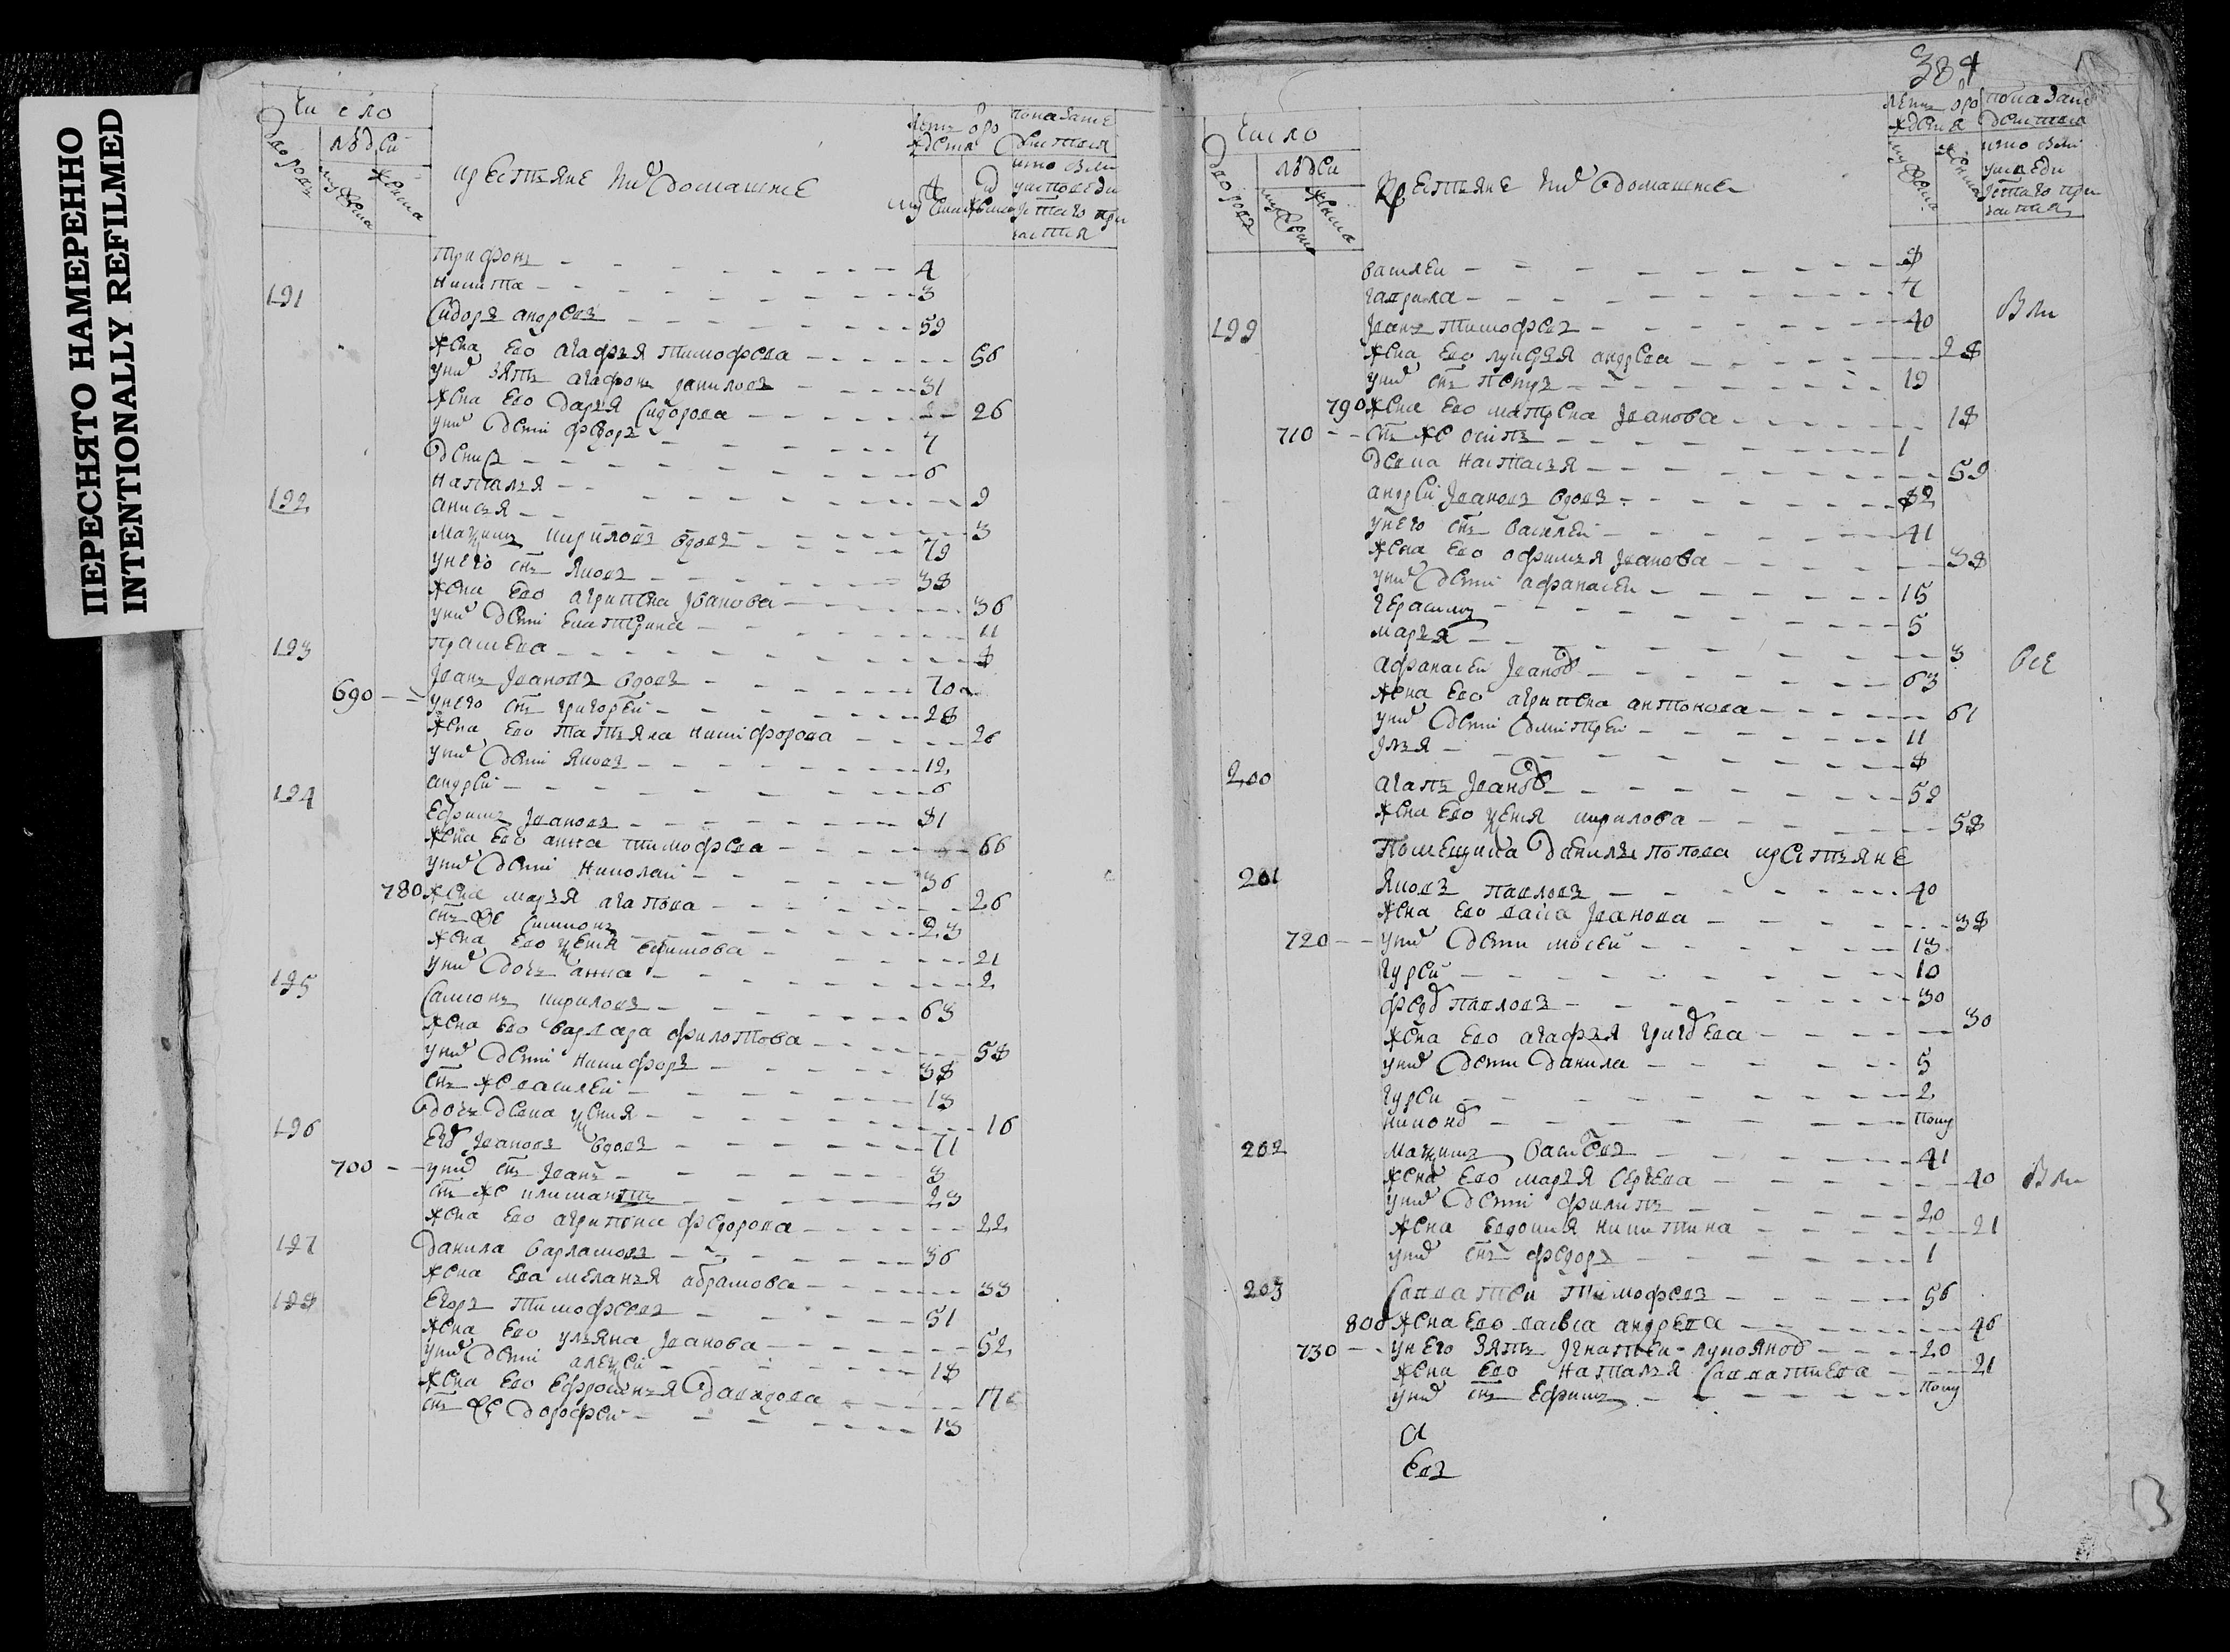 ПЕРЕСНЯТО НАМЕРЕННО
INTENTIONALLY REFILMED
Число
дворовъ
людей
мужеска
женска
крестьяне ихъ домашнее
летъ отро
ждения
мужеска
женска
показание
действия
кто были
у исповеди
и святаго при
частия
Трифонъ 4
Никита 3
191 Сидоръ андреевъ 59
жена ево агафья тимофеева 56
у них зять агафонъ 31
жена ево дарья сидорова 26
у них дети федоръ 7
денис 6
наталья 9
192 анисья 3
Максимъ кириловъ вдовъ 79
у него снъ яковъ 38
жена ево агрипена иванова 36
у них дети екатерина 11
193 прасковья 8
Иванъ Ивановъ вдовъ 70
690 у него снъ григорей 28
жена ево татьяна никифорова 26
у них дети яковъ 12
194 андрей 6
Ефимъ Ивановъ 81
жена ево анна тимофеева 66
у них дети николай 36
780 жена марья агапова 26
снъ же симионъ 23
жена ево ксения ефимова 21
у них дочь анна 2
195 Самсонъ кириловъ 63
жена ево варвара филатова 58
у них дети никифоръ 38
снъ же василей 18
дочь девка ксения 16
196 Егоръ Ивановъ вдовъ 71
700 у них снъ Иванъ 3
снъ же климантъ 23
жена ево агрипена федорова 22
197 Данила варламовъ 36
жена ева меланья абрамова 33
198 Егоръ тимофеевъ 51
жена ево ульяна иванова 52
у них дети алексей 18
жена ево ефросинья давыдова 17
снъ же дорофей 13
384
Число
дворовъ
людей
мужеска
женска
крестьяне ихъ домашнее
летъ отро
ждения
мужеска
женска
показание
действия
кто были
у исповеди
и святаго при
частия
василей 8
гаврила 7
199 Иванъ тимофеевъ 40 Были
жена ево лукерья андреева 28
у них снъ петръ 19
790 жена ево матрена иванова 18
710 снъ же осипъ 1
девка настасья 59
андрей Ивановъ вдовъ 82
у него снъ василей 41
жена ево офимья иванова 38
у них дети афанасей 15
герасимъ 5
марья 3
афанасей Ивановъ 63 Все
жена ево агрипена антонова 61
у них дети дмитрей 11
илья 8
200 агапъ Ивановъ 59
жена ево ксения кирилова 58
Помещика данилы попова крестьяне
201 Яковъ павловъ 40
жена ево васса иванова 38
720 у них дети мосей 13
гурей 10
федоръ павловъ 30
жена ево агафья григорьева 30
у них дети данила 5
гурей 2
никонор полу
202 Максимъ васильевъ 41
жена ево марья сергеева 40 Были
у них дети филипъ 20
жена евдокия никитина 21
у них снъ федоръ 1
203 Савватей тимофеевъ 56
800 жена ево васса андреева 46
730 у него зять игнатей лукоянов 20
жена ево наталья савватиева 21
у них снъ ефимъ полу